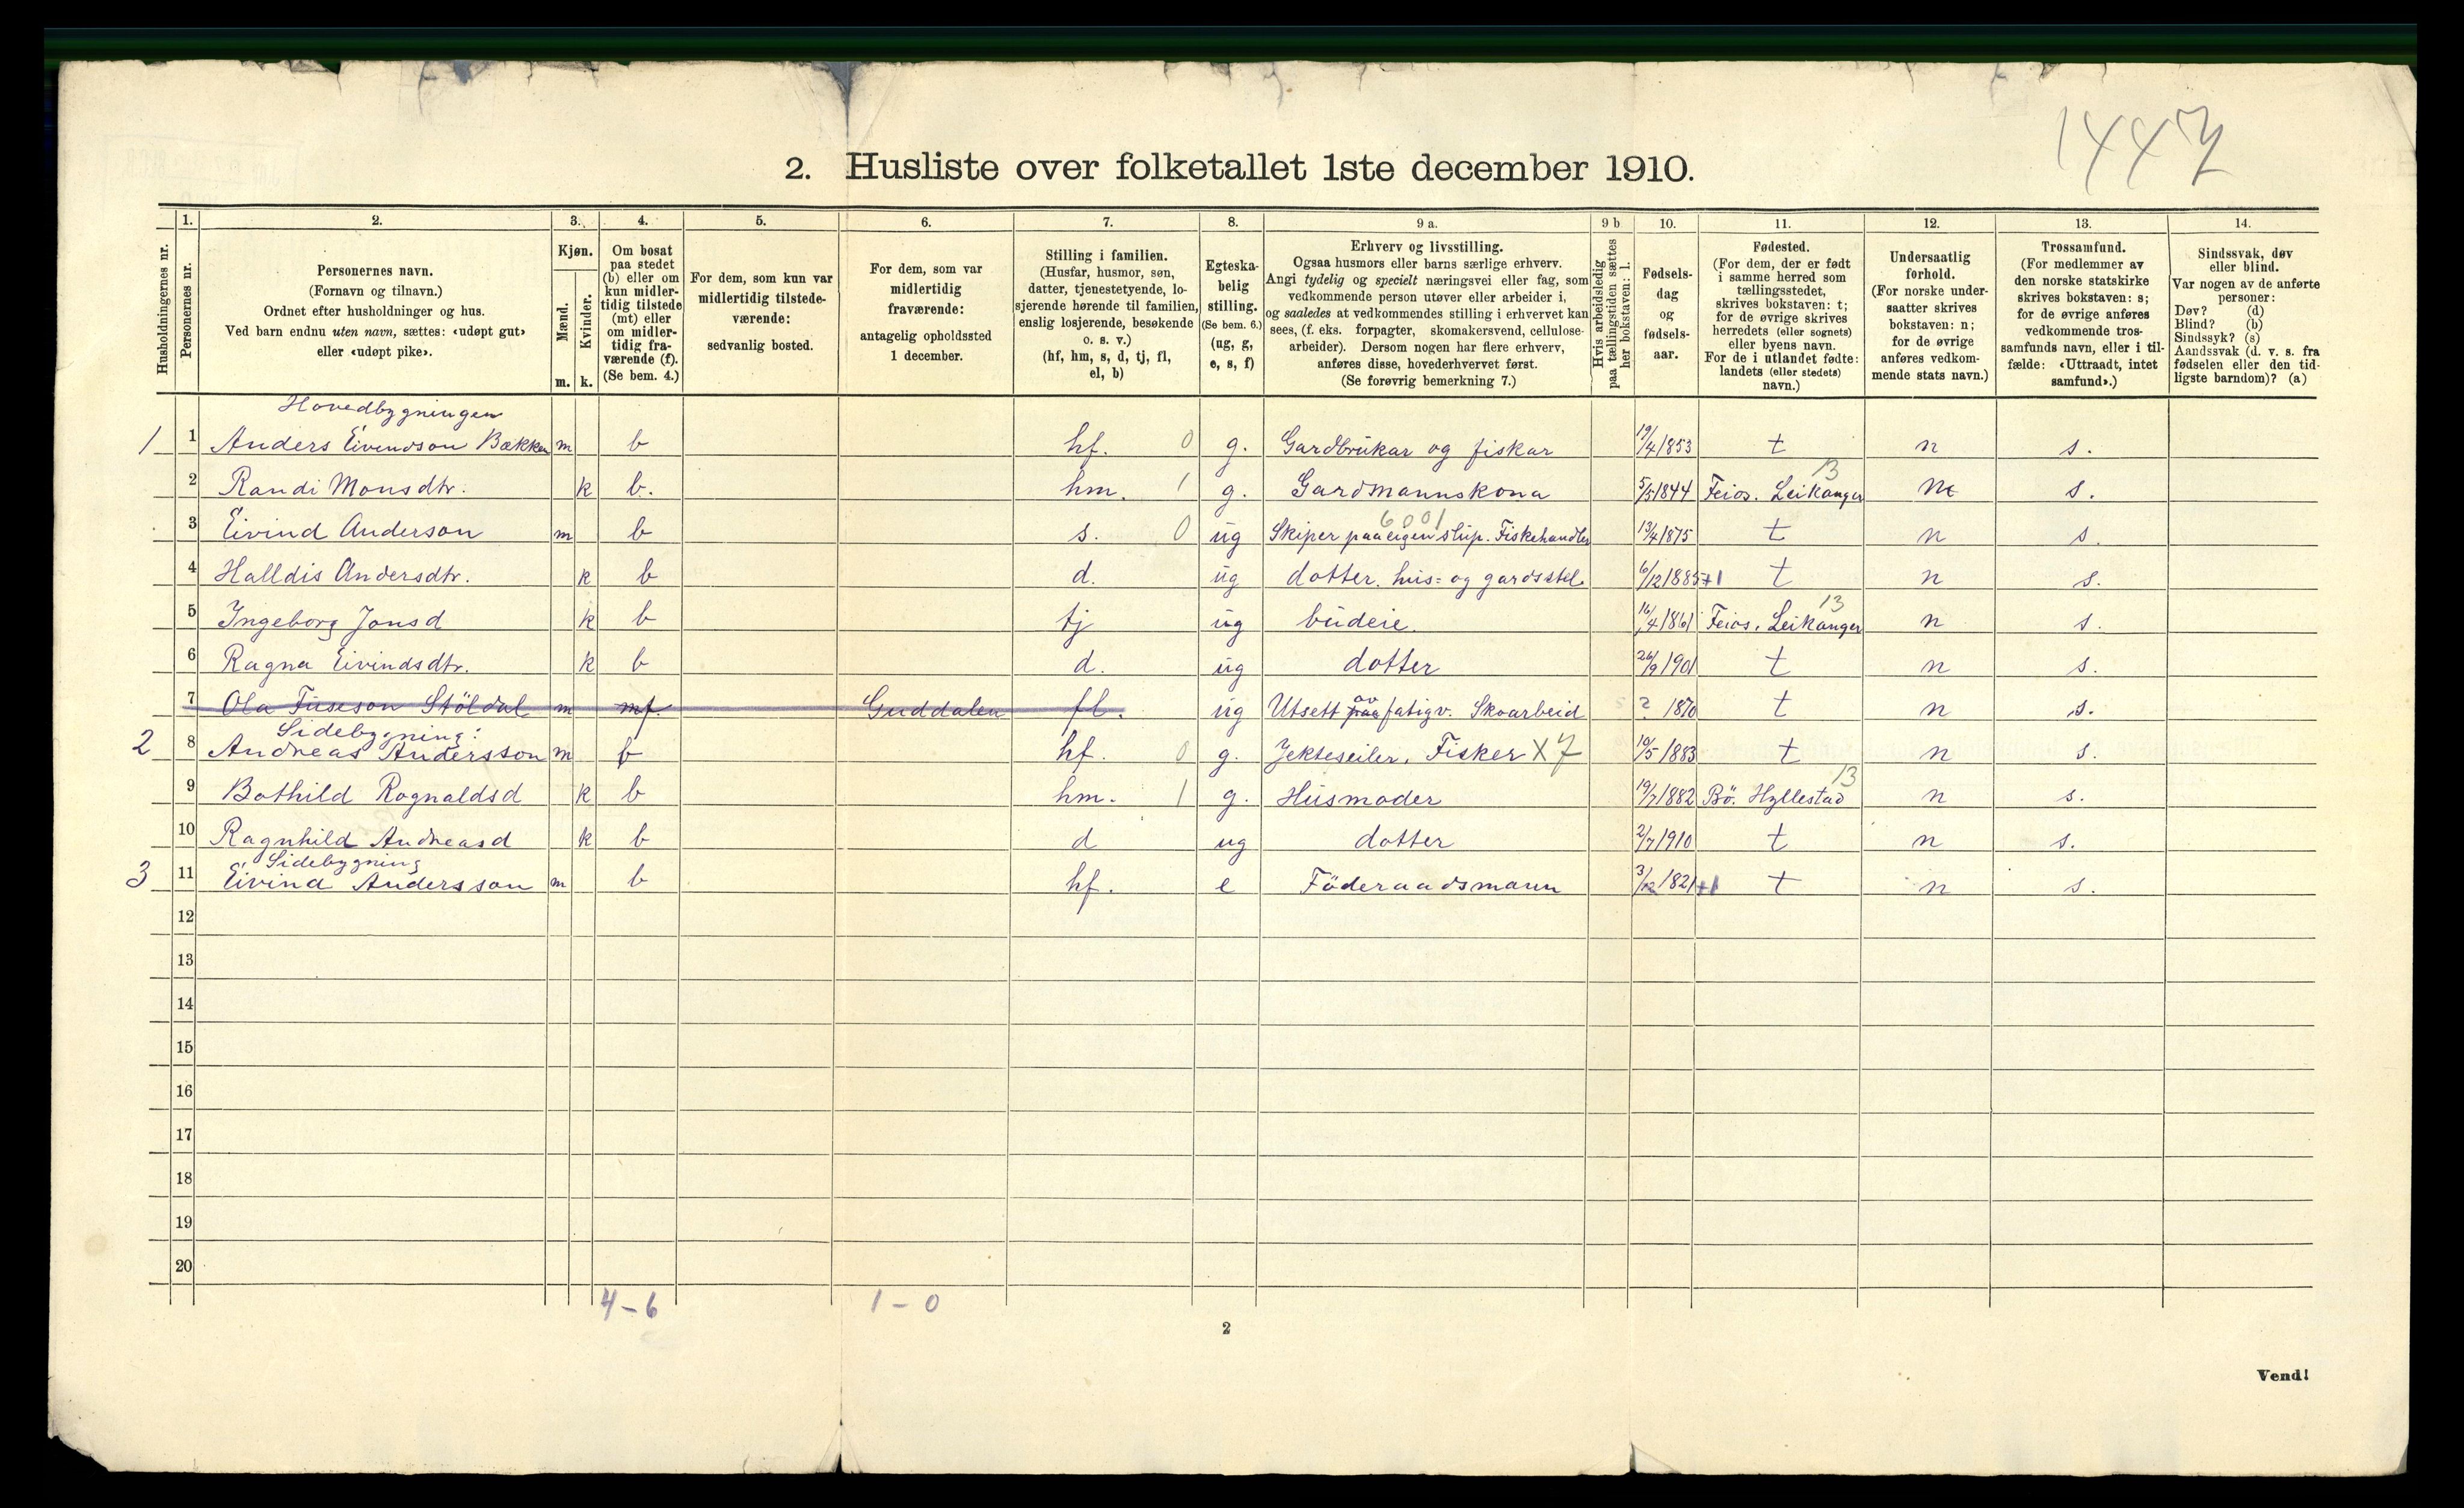 1447
2. Husliste over folketallet 1ste december 1910.
Husholdningernes nr.
1.
Personernes nr.
2.
Personernes navn.
(Fornavn og tilnavn.)
Ordnet efter husholdninger og hus.
Ved barn endnu uten navn, sættes: «udøpt gut»
eller «udøpt pike».
3.
Kjøn.
Mænd.
m.
Kvinder.
k.
4.
Om bosat
paa stedet
(b) eller om
kun midler-
tidig tilstede
(mt) eller
om midler-
tidig fra-
værende (f).
(Se bem. 4.)
5.
For dem, som kun var
midlertidig tilstede-
værende:
sedvanlig bosted.
6.
For dem, som var
midlertidig
fraværende:
antagelig opholdssted
1 december.
7.
Stilling i familien.
(Husfar, husmor, søn,
datter, tjenestetyende, lo-
sjerende hørende til familien,
enslig losjerende, besøkende
o. s. v.)
(hf, hm, s, d, tj, fl,
el, b)
8.
Egteska-
belig
stilling.
(Se bem. 6.)
(ug, g,
e, s, f)
9 a.
Erhverv og livsstilling.
Ogsaa husmors eller barns særlige erhverv.
Angi tydelig og specielt næringsvei eller fag, som
vedkommende person utøver eller arbeider i,
og saaledes at vedkommendes stilling i erhvervet kan
sees, (f. eks. forpagter, skomakersvend, cellulose-
arbeider). Dersom nogen har flere erhverv,
anføres disse, hovederhvervet først.
(Se forøvrig bemerkning 7.)
9 b
Hvis arbeidsledig
paa tællingstiden sættes
her bokstaven: l.
10.
Fødsels-
dag
og
fødsels-
aar.
11.
Fødested.
(For dem, der er født
i samme herred som
tællingsstedet,
skrives bokstaven: t;
for de øvrige skrives
herredets (eller sognets)
eller byens navn.
For de i utlandet fødte:
landets (eller stedets)
navn.)
12.
Undersaatlig
forhold.
(For norske under-
saatter skrives
bokstaven: n;
for de øvrige
anføres vedkom-
mende stats navn.)
13.
Trossamfund.
(For medlemmer av
den norske statskirke
skrives bokstaven: s;
for de øvrige anføres
vedkommende tros-
samfunds navn, eller i til-
fælde: «Uttraadt, intet
samfund».)
14.
Sindssvak, døv
eller blind.
Var nogen av de anførte
personer:
Døv? (d)
Blind? (b)
Sindssyk? (s)
Aandssvak (d. v. s. fra
fødselen eller den tid-
ligste barndom)? (a)
Hovedbygningen
1 1 Anders Eivendson Bækken m b hf. 0 g. Gardbrukar og fiskar 19/4 1853 t n s.
13
2 Randi Monsdtr. k b. hm. 1 g. Gardmannskona 5/5 1844 Feios. Leikanger n s.
6001
3 Eivind Anderson m b s. 0 ug Skiper paa eigen slup. Fiskehandler 13/4 1875 t n s.
4 Halldis Andersdtr. k b d. ug dotter. hus= og gardsstel 6/12 1885+1 t n s.
13
5 Ingeborg Jonsd k b tj ug budeie. 16/4 1861 Feios. Leikanger n s.
6 Ragna Eivindsdtr. k b d. ug dotter 26/9 1901 t n s.
av
7 Ola Fuseson Stöldal m mf. Guddalen fl. ug Utsett paa fatigv. Skoarbeid ? 1870 t n s.
Sidebygning:
2 8 Andreas Andersson m b hf. 0 g. Jekteseiler. Fisker X7 10/5 1883 t n s.
13
9 Bothild Rognaldsd k b hm. 1 g. Husmoder 19/7 1882 Bö. Hyllestad n s.
10 Ragnhild Andreasd k b d ug dotter 2/7 1910 t n s.
Sidebygning
3 11 Eivind Andersson m b hf. e Föderaadsmann 3/12 1821+1 t n s.
12
13
14
15
16
17
18
19
20
4-6 1-0
2
Vend!